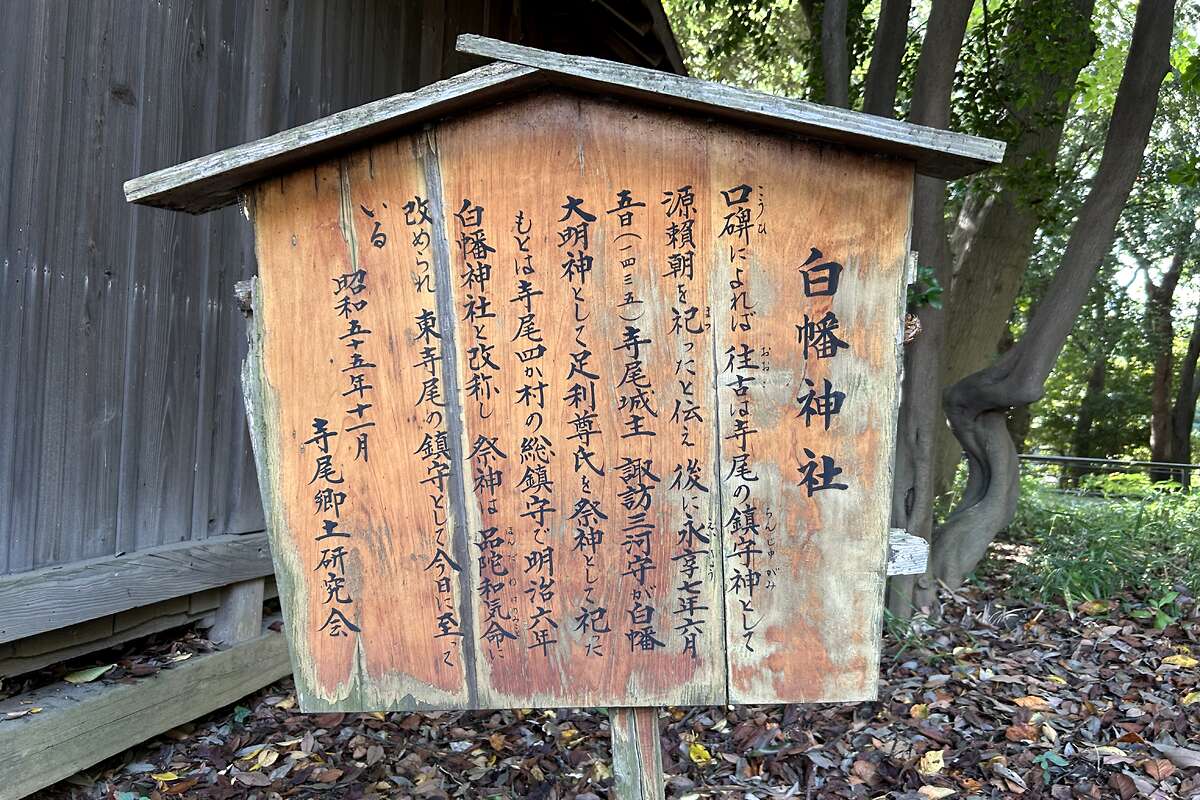 白幡神社
口碑によれば 往古は寺尾の鎮守神として
源頼朝を祀ったと伝え 後に永享七年六月
五日(一四三五)寺尾城主 諏訪三河守が白幡
大明神として足利尊氏を祭神として 祀った
もとは寺尾四か村の総鎮守で明治六年
白幡神社と改称し 祭神は 品陀和気命に
改められ 東寺尾の鎮守として今日に至って
いる
昭和五十五年十一月
寺尾郷土研究会